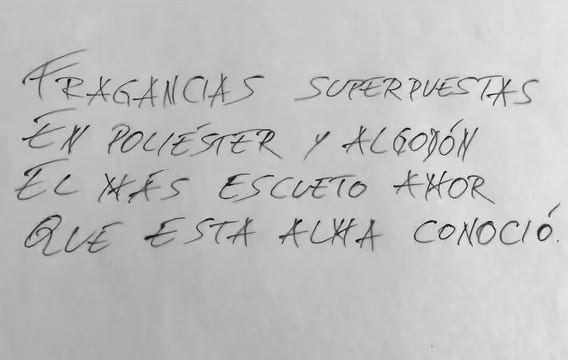 FRAGANCIAS SUPERPUESTAS
EN POLIÉSTER Y ALGODÓN
EL MÁS ESCUETO AMOR
QUE ESTA ALMA CONOCIÓ.